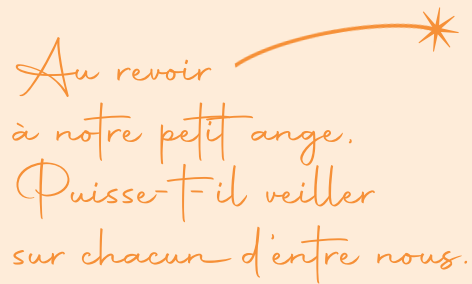 Au revoir
à notre petit ange,
Puisse-t-il veiller
sur chacun d'entre nous.